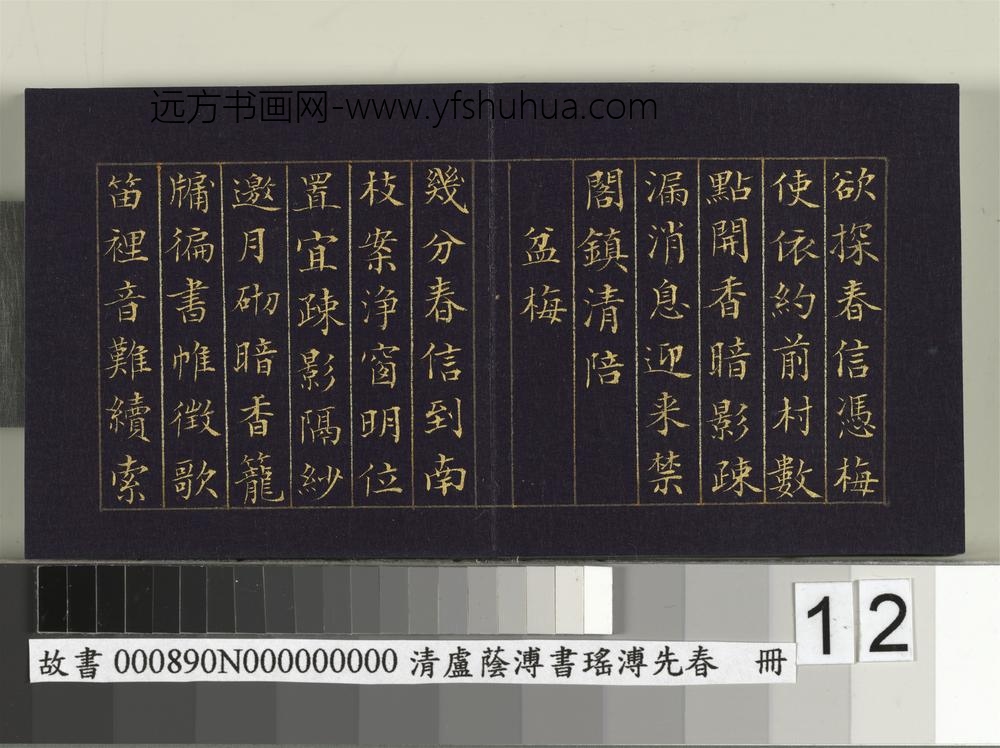 远方书画网-www.yfshuhua.com
欲探春信憑梅
使依約前村數
點開香暗影疎
漏消息迎来禁
閣鎮清陪
盆梅
幾分春信到南
枝案淨窗明位
置宜疎影隔紗
邀月砌暗香籠
牖徧書帷徴歌
笛裡音難續索
12
故書 000890N000000000 清盧蔭溥書瑤溥先春 冊